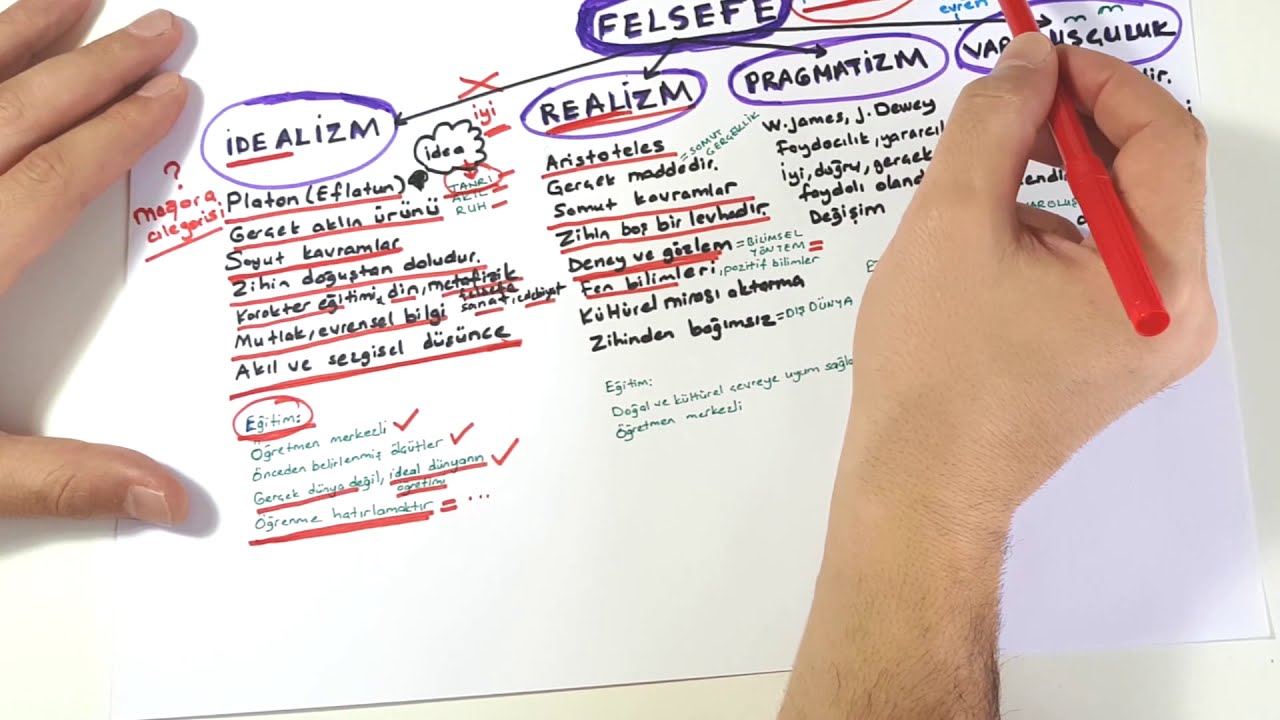 FELSEFE
evren
İDEALİZM
?
mağara
alegorisi
Platon (Eflatun)
Gerçek aklın ürünü
Soyut kavramlar
Zihin doğuştan doludur.
Karakter eğitimi, din, metafizik
felsefe
sanat, edebiyat
Mutlak, evrensel bilgi
Akıl ve sezgisel düşünce
Eğitim:
Öğretmen merkezli
Önceden belirlenmiş ölçütler
Gerçek dünya değil, ideal dünyanın
öğretimi
Öğrenme hatırlamaktır = ...
iyi
idea
TANRI
AKIL
RUH
REALİZM
Aristoteles
Gerçek maddedir.
= SOMUT
GERÇEKLİK
Somut kavramlar
Zihin boş bir levhadır.
Deney ve gözlem = BİLİMSEL
YÖNTEM =
Fen bilimleri, pozitif bilimler
Kültürel mirası aktarma
Zihinden bağımsız = DIŞ DÜNYA
Eğitim:
Doğal ve kültürel çevreye uyum
Öğretmen merkezli
PRAGMATİZM
W. James, J. Dewey
Faydacılık,
iyi, doğru, gerçek
faydalı
Değişim